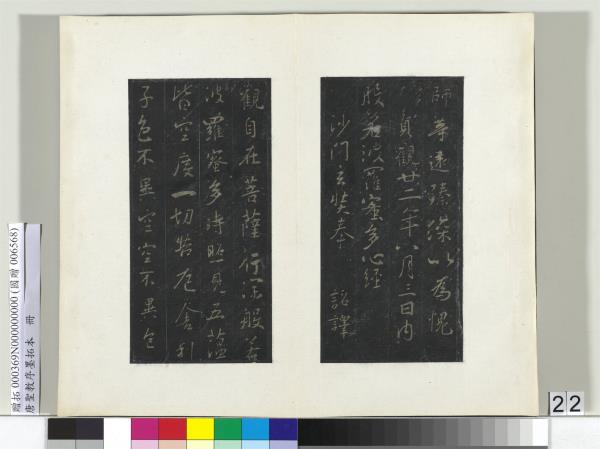 師等遠臻深以為愧
貞觀廿二年八月三日內
般若波羅蜜多心經
沙門玄奘奉 詔譯
觀自在菩薩行深般若
波羅蜜多時照見五蘊
皆空度一切苦厄舍利
子色不異空空不異色
贈拓 000369N000000000 (國贈 006568)
唐聖教序墨拓本 冊
22